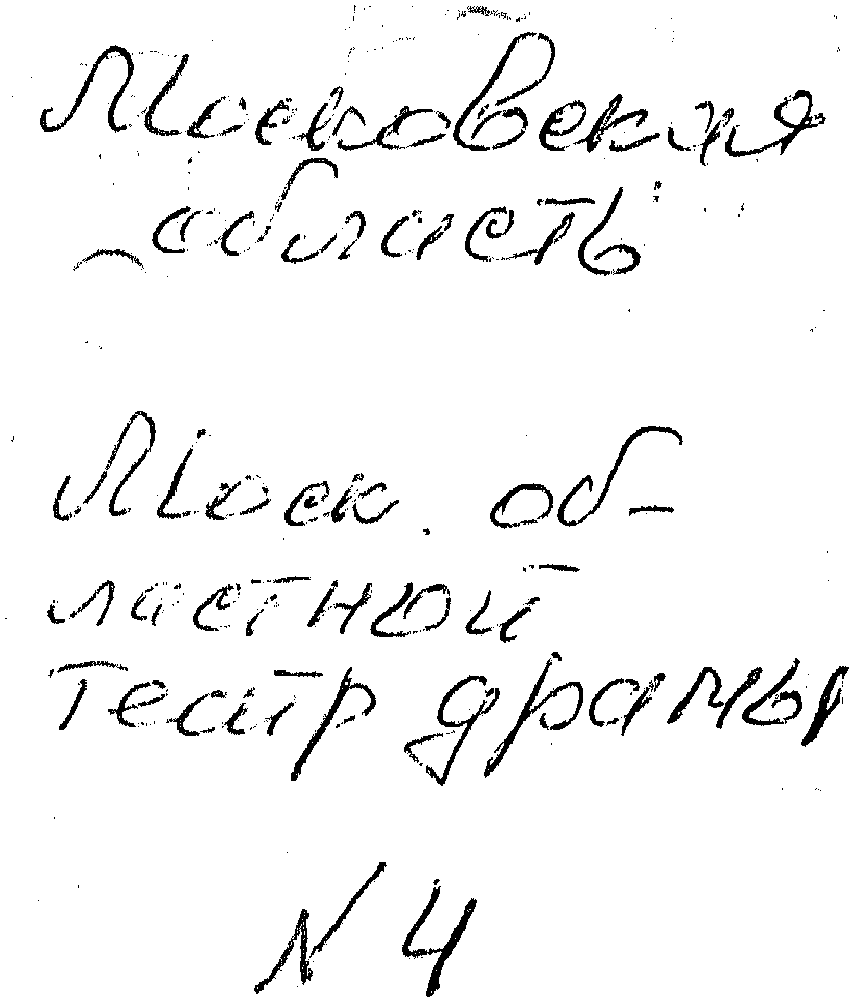 Московская
область
Моск. об-
ластной
театр драмы
N 4